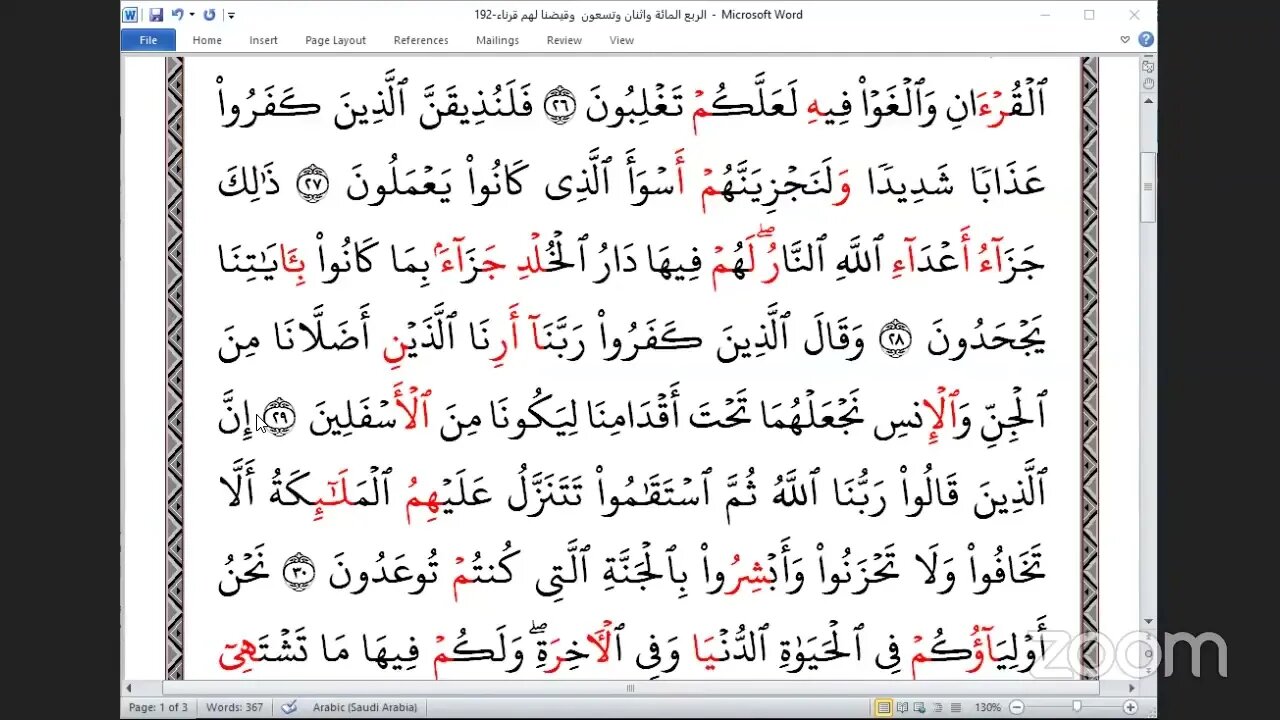 الربع المائة واثنان وتسعون وقيضنا لهم قرناء-192 - Microsoft Word
File Home Insert Page Layout References Mailings Review View
ٱلۡقُرۡءَانِ وَٱلۡغَوۡاْ فِيهِ لَعَلَّكُمۡ تَغۡلِبُونَ ٢٦ فَلَنُذِيقَنَّ ٱلَّذِينَ كَفَرُواْ
عَذَابٗا شَدِيدٗا وَلَنَجۡزِيَنَّهُمۡ أَسۡوَأَ ٱلَّذِى كَانُواْ يَعۡمَلُونَ ٢٧ ذَٰلِكَ
جَزَآءُ أَعۡدَآءِ ٱللَّهِ ٱلنَّارُۖ لَهُمۡ فِيهَا دَارُ ٱلۡخُلۡدِ جَزَآءَۢ بِمَا كَانُواْ بِـَٔايَٰتِنَا
يَجۡحَدُونَ ٢٨ وَقَالَ ٱلَّذِينَ كَفَرُواْ رَبَّنَآ أَرِنَا ٱلَّذَيۡنِ أَضَلَّانَا مِنَ
ٱلۡجِنِّ وَٱلۡإِنسِ نَجۡعَلۡهُمَا تَحۡتَ أَقۡدَامِنَا لِيَكُونَا مِنَ ٱلۡأَسۡفَلِينَ ٢٩ إِنَّ
ٱلَّذِينَ قَالُواْ رَبُّنَا ٱللَّهُ ثُمَّ ٱسۡتَقَٰمُواْ تَتَنَزَّلُ عَلَيۡهِمُ ٱلۡمَلَٰٓئِكَةُ أَلَّا
تَخَافُواْ وَلَا تَحۡزَنُواْ وَأَبۡشِرُواْ بِٱلۡجَنَّةِ ٱلَّتِى كُنتُمۡ تُوعَدُونَ ٣٠ نَحۡنُ
أَوۡلِيَآؤُكُمۡ فِى ٱلۡحَيَوٰةِ ٱلدُّنۡيَا وَفِى ٱلۡأٓخِرَةِۖ وَلَكُمۡ فِيهَا مَا تَشۡتَهِىٓ
zoom
Page: 1 of 3 Words: 367 Arabic (Saudi Arabia) 130%